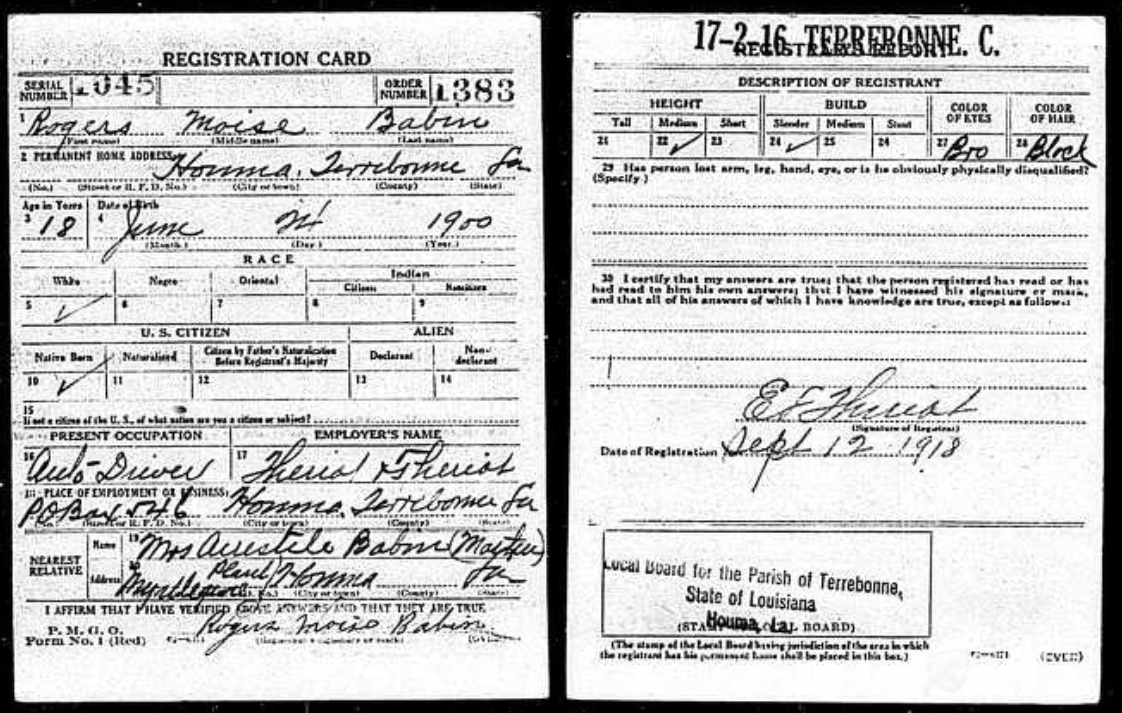 REGISTRATION CARD
SERIAL NUMBER 1045 ORDER NUMBER 1383
1 Rogers Moise Babin
(First name) (Middle name) (Last name)
2 PERMANENT HOME ADDRESS:
Houma, Terrebonne La
(No.) (Street or R. F. D. No.) (City or town) (County) (State)
Age in Years Date of Birth
3 18 4 June 24 1900
(Month.) (Day.) (Year.)
RACE
White Negro Oriental Indian
Citizen Noncitizen
5 ✓ 6 7 8 9
U. S. CITIZEN ALIEN
Native Born Naturalized Citizen by Father's Naturalization Before Registrant's Majority Declarant Non-declarant
10 ✓ 11 12 13 14
15
If not a citizen of the U. S., of what nation are you a citizen or subject?
PRESENT OCCUPATION EMPLOYER'S NAME
16 Auto Driver 17 Theriot & Theriot
18 PLACE OF EMPLOYMENT OR BUSINESS:
PO Box 546 Houma Terrebonne La
(No.) (Street or R. F. D. No.) (City or town) (County) (State)
NEAREST RELATIVE Name 19 Mrs Babin (Mother)
Address 20 Plant Houma La
(No.) (City or town) (County) (State)
I AFFIRM THAT I HAVE VERIFIED ABOVE ANSWERS AND THAT THEY ARE TRUE
P. M. G. O.
Form No. 1 (Red)
Rogers Moise Babin
(Registrant's signature or mark)
17-2-16 TERREBONNE. C.
REGISTRAR'S REPORT
DESCRIPTION OF REGISTRANT
HEIGHT BUILD COLOR OF EYES COLOR OF HAIR
Tall Medium Short Slender Medium Stout
21 22 ✓ 23 24 ✓ 25 26 27 Bro 28 Black
29 Has person lost arm, leg, hand, eye, or is he obviously physically disqualified?
(Specify.)
30 I certify that my answers are true; that the person registered has read or has
had read to him his own answers; that I have witnessed his signature or mark,
and that all of his answers of which I have knowledge are true, except as follows:
E F Theriot
(Signature of Registrar)
Date of Registration Sept 12 1918
Local Board for the Parish of Terrebonne,
State of Louisiana
Houma, La.
(STAMP OF LOCAL BOARD)
(The stamp of the Local Board having jurisdiction of the area in which
the registrant has his permanent home shall be placed in this box.)
(OVER)